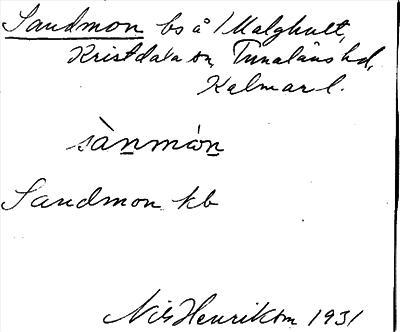 Sandmon bs å Malghult,
Kristdala sn, Tunaläns hd,
Kalmar l.
sànmón
Sandmon kb
Nils Henriksson 1931